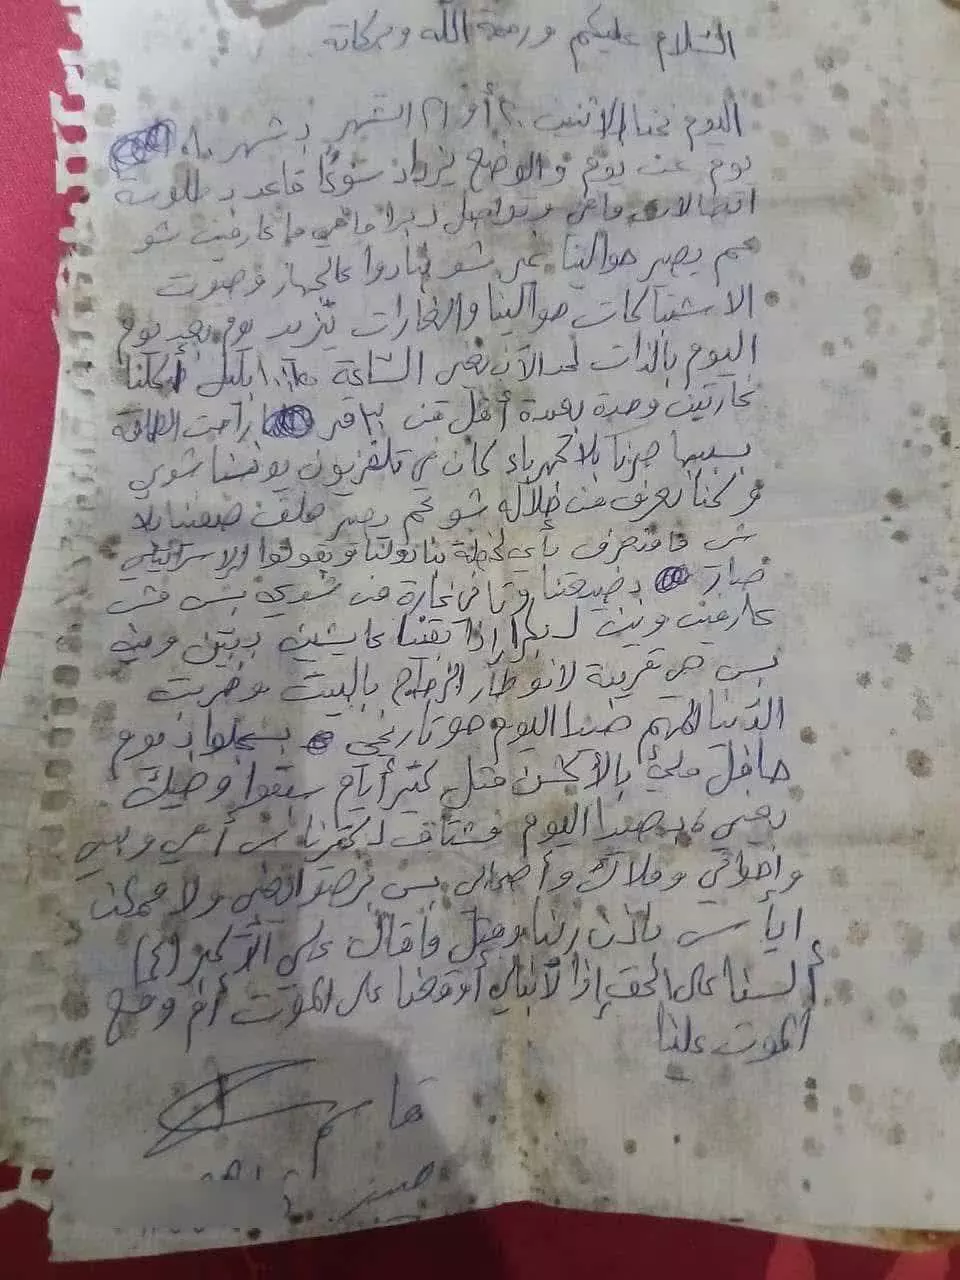 السلام عليكم ورحمة الله وبركاته
اليوم نحنا الاثنين ٢٠ أو ٢١ الشهر بشهر ١٠
يوم عن يوم والوضع يزداد سوءًا قاعد بطلوسة
اتصالات ما في وتواصل لبرا ما في ما عارفين شو
عم يصير حوالينا غير شو بنادوا عالجهاز وصوت
الاشتباكات حوالينا والغارات تزيد يوم بعد يوم
اليوم بالذات لحد الآن يعني الساعة ١٠:٠٠ بليل أكلنا
غارتين وحدة بعيدة أقل من ٣٠ متر راحت الطاقة
بسببها صرنا بلا كهرباء كان في تلفزيون يونسنا شوي
وكنا نعرف من خلاله شو عم يصير هلق صفينا بلا
شي فمنعرف بأي لحظة بنادولنا وبقولوا الإسرائيلي
صار بضيعتنا وتاني غارة من شوي بس مش
عارفين وين لبكرا إذا بقينا عايشين ببين وين
بس هي قريبة لانو طار الزجاج بالبيت وخربت
الدنيا المهم هيدا اليوم هو تاريخي بسجلوا يوم
حافل مليء بالأكشن متل كتير أيام سبقوا وهيك
يعني بهيدا اليوم مشتاق لكتير ناس أمي وبيي
واخواتي وملاك وأصحابي بس برضو انهني ولا ممكن
ايأس باذن ربنا ومتل ما قال علي الأكبر (ع)
ألسنا على الحق إذا لا نبالي أوقعنا على الموت أم وقع
الموت علينا
قاسم